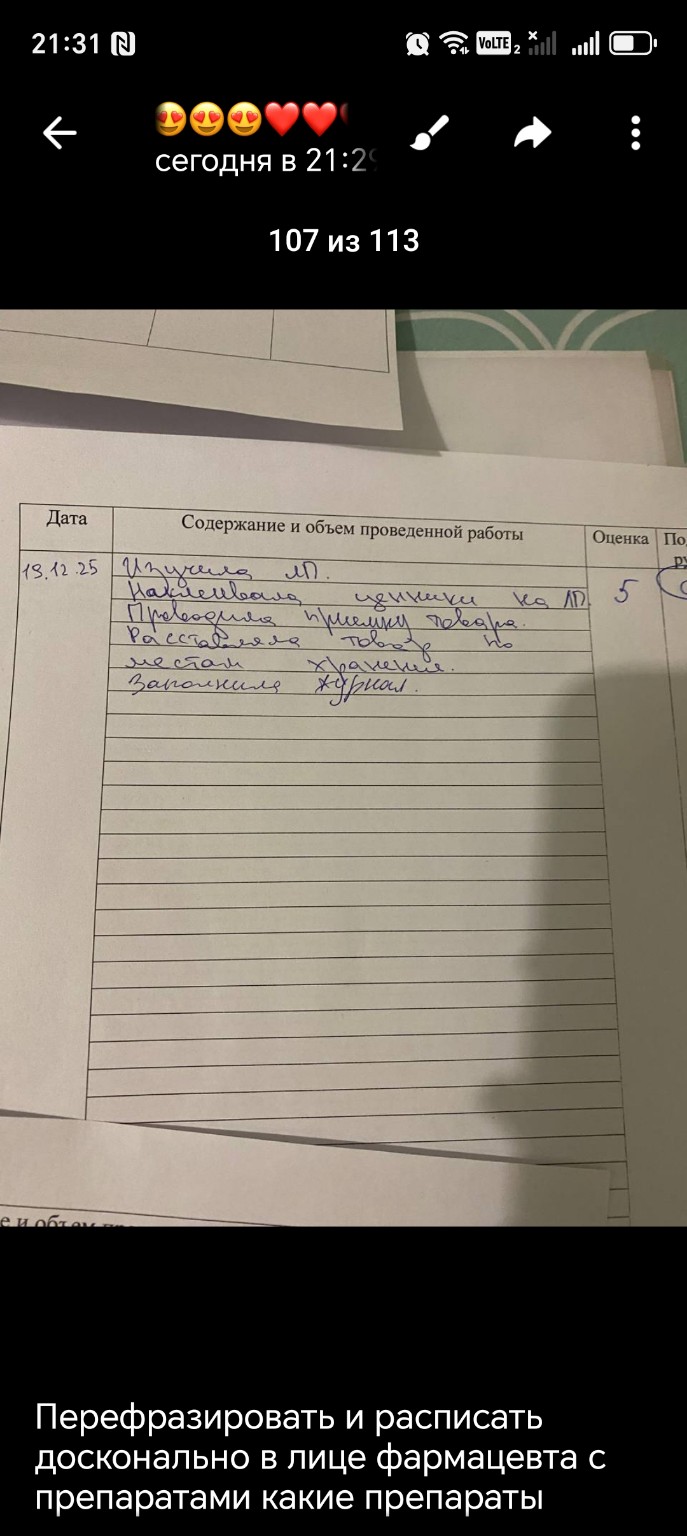 21:31
VoLTE 2
😍😍😍❤️❤️
сегодня в 21:29
107 из 113
Дата
Содержание и объем проведенной работы
Оценка
По
ру
19.12.25
Изучила ЛП.
Наклеивала ценники на ЛП
5
Проводила приемку товара.
Расставляла товар по
местам хранения.
Заполнила журнал.
е и объем
Перефразировать и расписать
досконально в лице фармацевта с
препаратами какие препараты